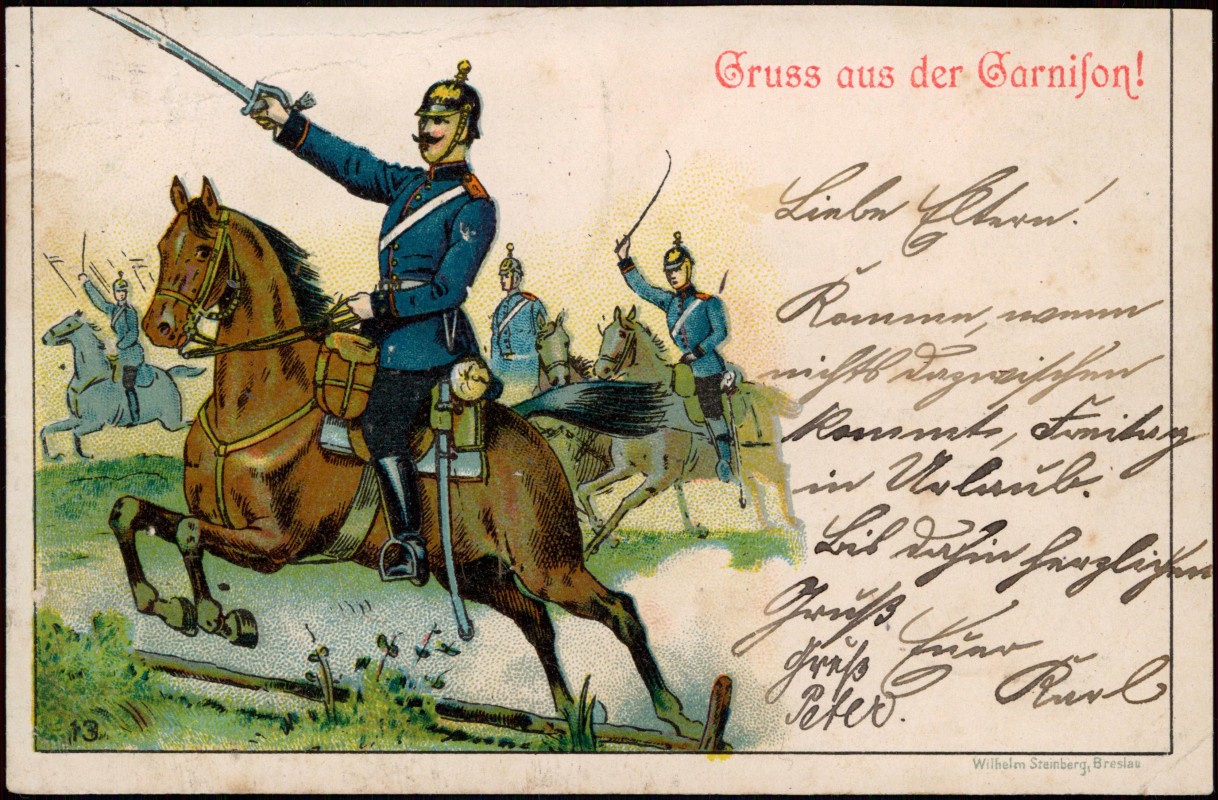 Gruss aus der Garniſon!
Liebe Eltern!
Komme, wenn
nichts dazwischen
kommt, Freitag
in Urlaub.
Bis dahin herzlichen
Gruß
Euer
Gruß
Karl
Peter.
13
Wilhelm Steinberg, Breslau